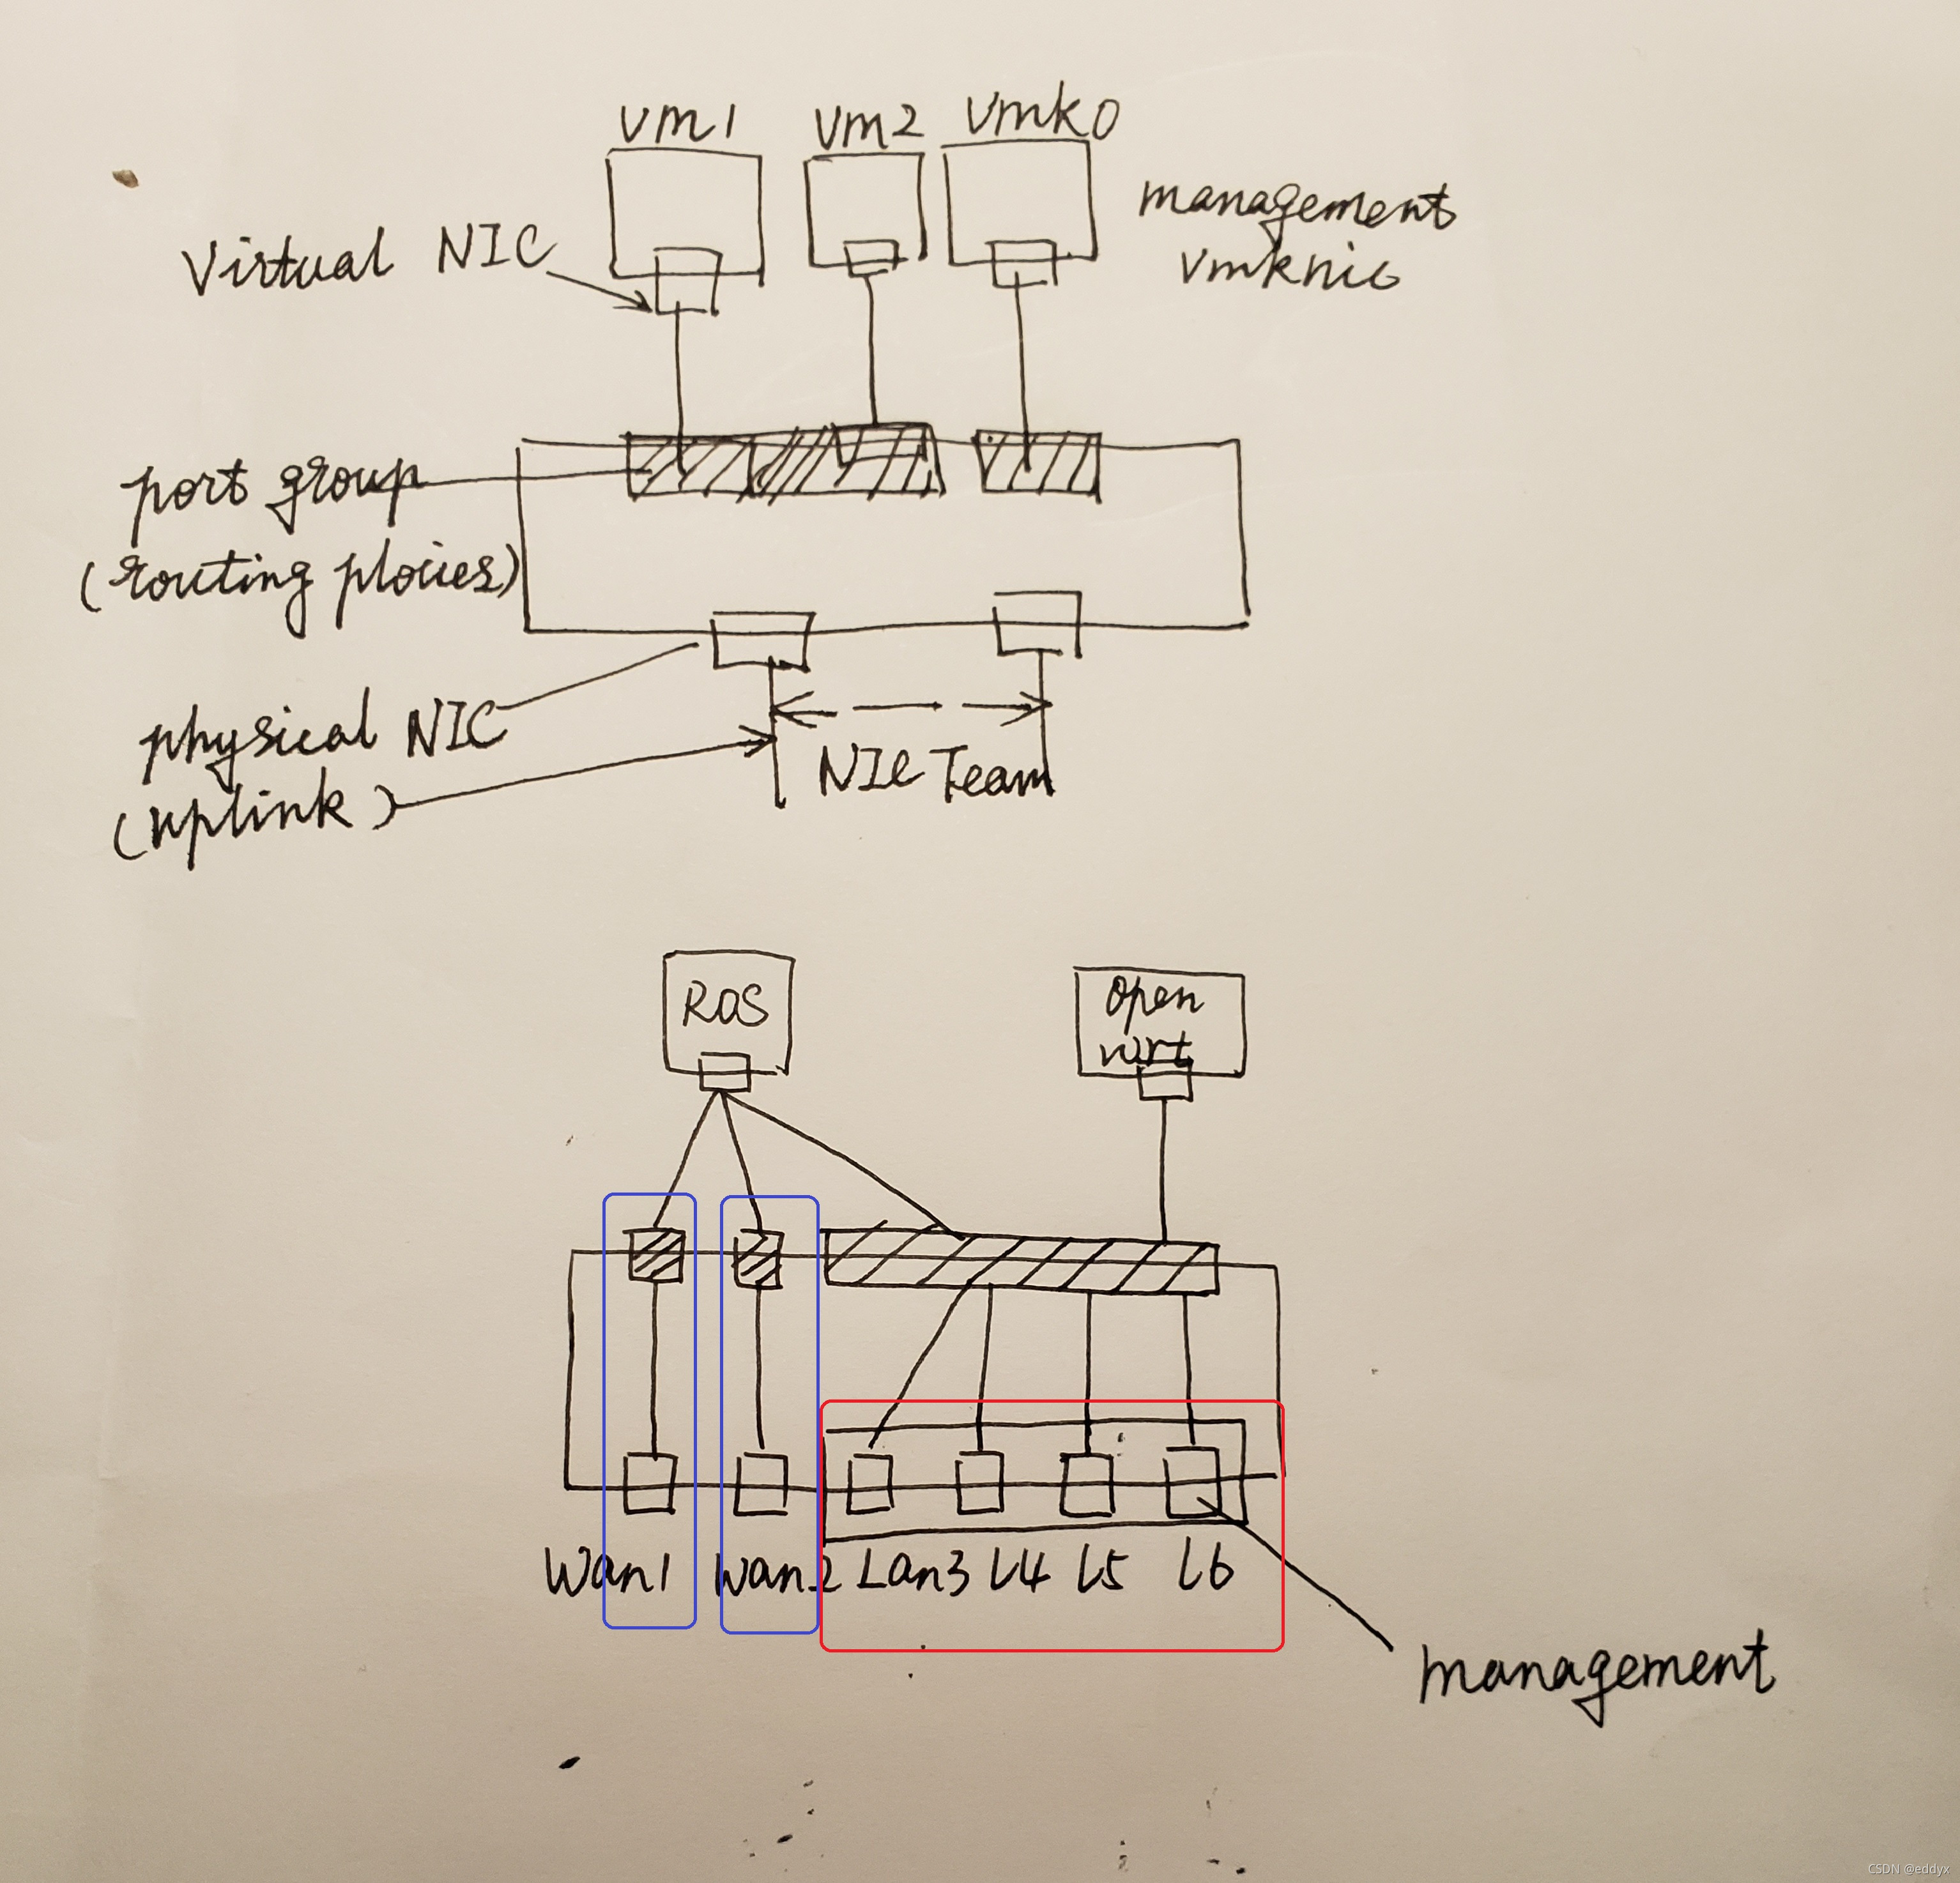 vm1 vm2 vmk0
management
vmknic
Virtual NIC
port group
(routing ploices)
physical NIC
(uplink)
NIC Team
ROS
open
wrt
Wan1 Wan2 Lan3 L4 L5 L6
management
CSDN @eddyx